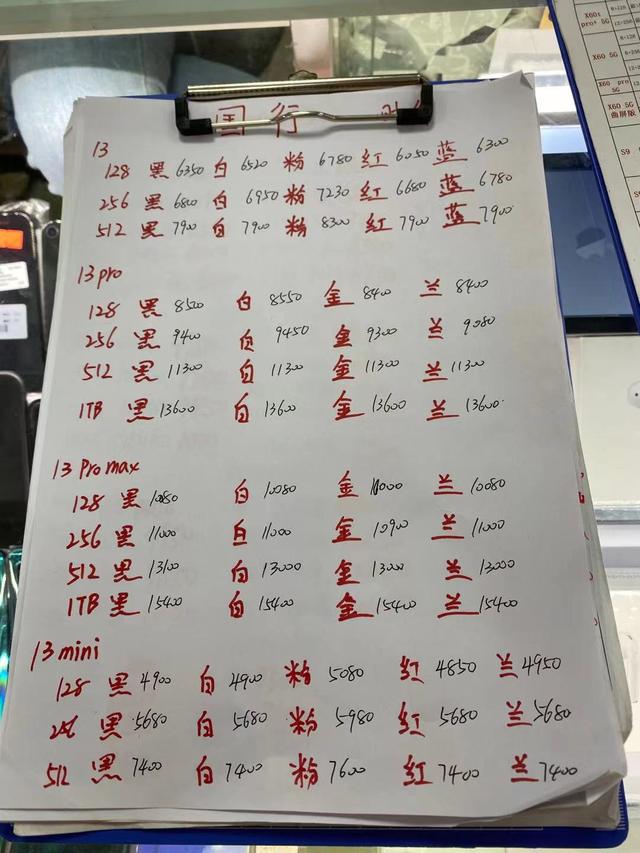 国行
13
128 黑 6350 白 6520 粉 6780 红 6050 蓝 6300
256 黑 6800 白 6950 粉 7230 红 6680 蓝 6780
512 黑 7900 白 7900 粉 8300 红 7900 蓝 7900
13 pro
128 黑 8500 白 8550 金 8400 兰 8400
256 黑 9400 白 9450 金 9300 兰 9080
512 黑 11300 白 11300 金 11300 兰 11300
1TB 黑 13600 白 13600 金 13600 兰 13600
13 Pro max
128 黑 10080 白 10080 金 10000 兰 10080
256 黑 11000 白 11000 金 10900 兰 11000
512 黑 13100 白 13000 金 13000 兰 13000
1TB 黑 15400 白 15400 金 15400 兰 15400
13 mini
128 黑 4900 白 4900 粉 5080 红 4850 兰 4950
256 黑 5680 白 5680 粉 5980 红 5680 兰 5680
512 黑 7400 白 7400 粉 7600 红 7400 兰 7400
X60t
pro+ 5G
X60 5G
X60 pro
5G
X60 5G
曲屏版
S9